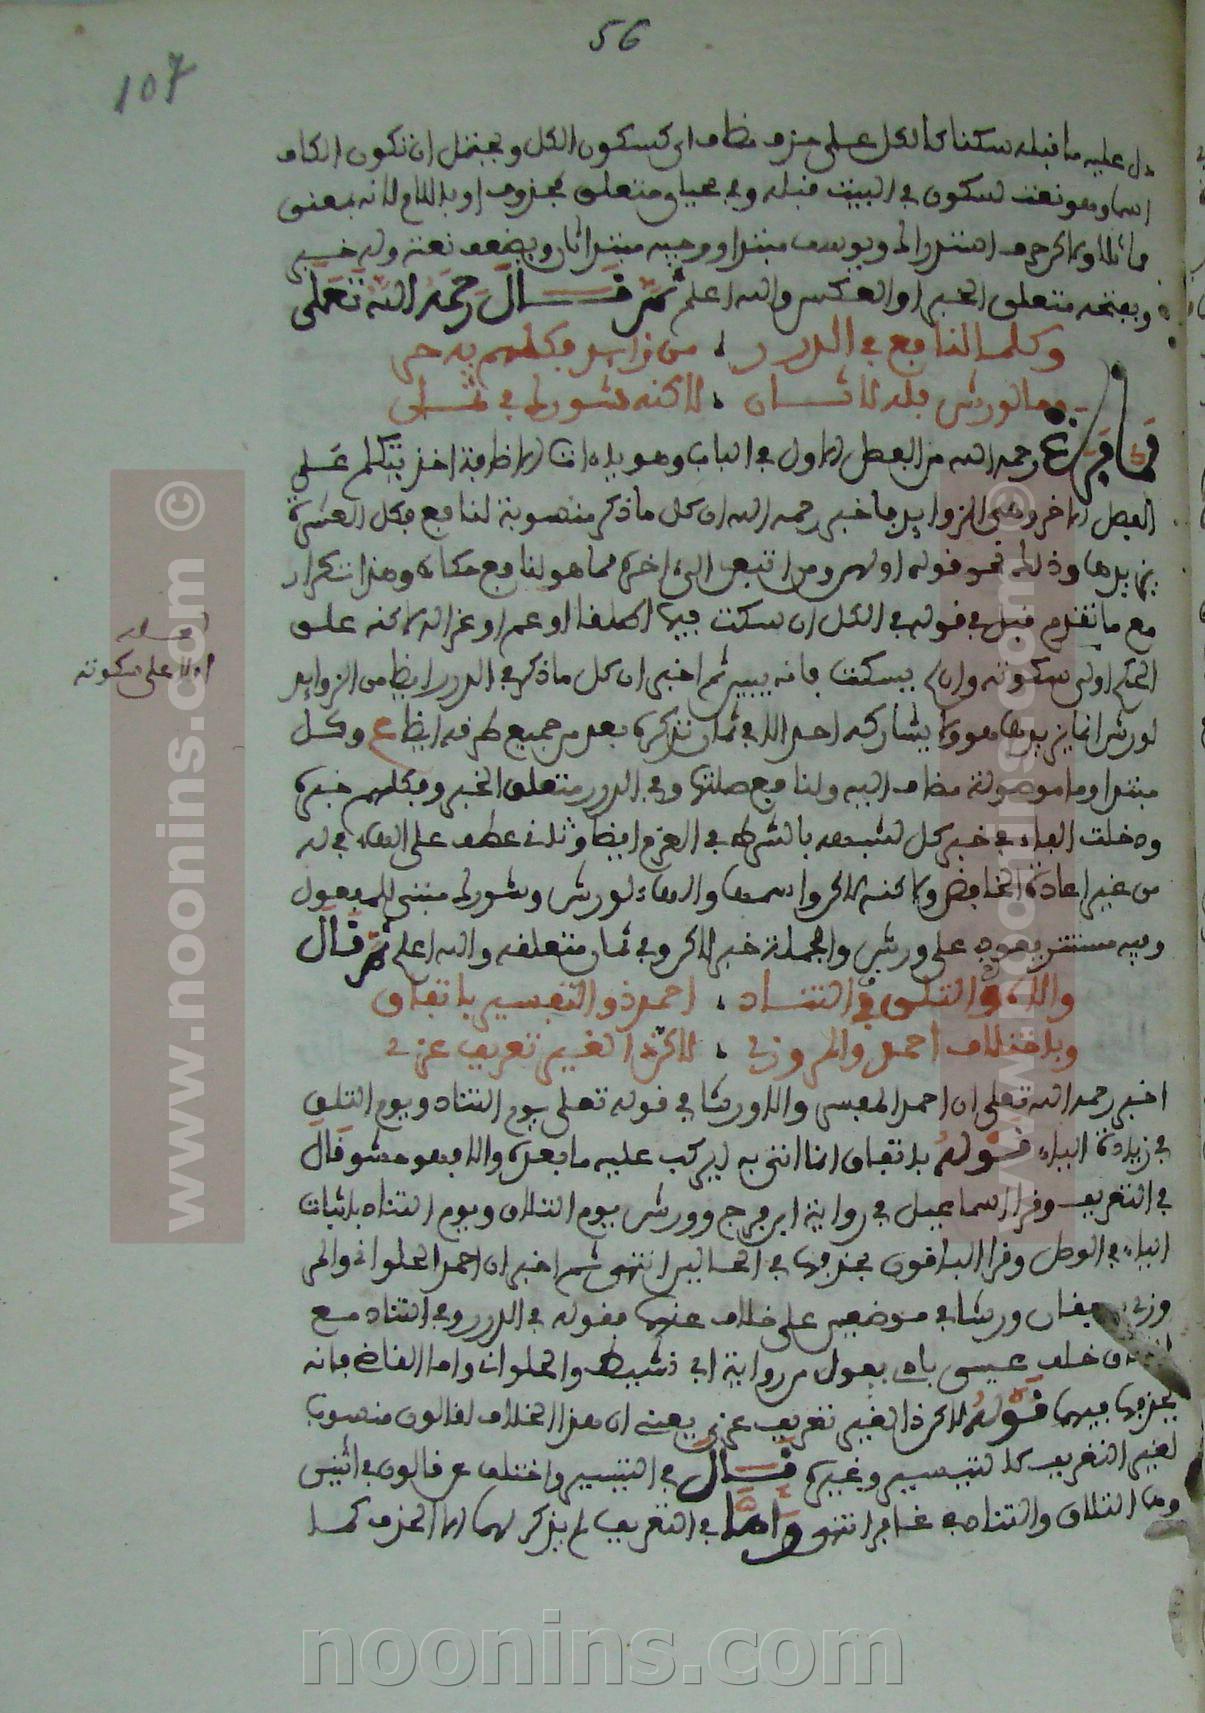 56
107
دل عليه ما قبله سكنا كالكل على حزف مظاف اي كسكون الكل ويحتمل ان تكون الكاف
اسما وهو نعت لسكون في البيت قبله وفي محياي متعلق بمحذوف او بالامام لانه بمعنى
ويوسف مبتدا وجيه مبتدا ثان وبضعف نعته وله خبر
وبفتحه متعلق الخبر او العكس والله اعلم ثم قال رحمه الله تعلى
وكلما لنا فع في الدرر ، من زايد فكلهم به حر
وما لورش قله لا ثان ، لاكنه شورك في ثمان
فلما فرغ رحمه الله من الفصل الاول في الباب وهو ياءات الاظافة اخذ يتكلم على
الفصل الاخر وهي الزوايد فاخبر رحمه الله ان كل ما ذكر منصوبة لنافع فكل العشرة
يزيدها وذلك نحو قوله اولهن ومن اتبعن الى اخره مما هو لنافع حكاه وهذا تكرار
مع ما تقدم قبل في قوله في الكل ان سكت فيها اطلقا او عم او عزا لاكنه على
الحكم اولى سكوته وان لم يسكت فانه يبين ثم اخبر ان كل ما ذكر في الدرر ايظا من الزوايد
لورش انما يزيدها هو ولا يشاركه احد الا في ثمان تذكره بعد من جميع طرفه ايظا ع وكل
مبتدا وما موصولة مظاف اليه ولنافع صلتها وفي الدرر متعلق الخبر وفكلهم خبره
ودخلت الفاء في خبر كل لشبهه بالشرط في العموم ايظا وثلاني عطف على الهاء في له
من غير اعادة الخافض ولاكنه لاكن واسمها والهاء لورش وشورك مبني للمفعول
وفيه مستتر يعود على ورش والجملة خبر لاكن وفي ثمان متعلقه والله اعلم ثم قال
واللاء والتلاق في التناد ، احمد ذو التفسير باتفاق
وباختلاف احمد والمروزي ، لاكن ذا لغير تعريف عزي
اخبر رحمه الله تعلى ان احمد المفسر والاورشا في قوله تعلى يوم التناد ويوم التلاق
في زيادة الياء قوله باتفاق انما اتى به ليركب عليه ما بعده والا فهو حشو قال
في التعريف وقرا اسماعيل في رواية ابن فرج وورش يوم التلاق ويوم التناد باثبات
الياء في الوصل وقرا الباقون بحذفها في الحالين انتهى ثم اخبر ان احمد الحلواني والمر
وزي يوافقان ورشا في موضعين على خلاف عنهما فقوله في الدرر وفي التناد مع
التلاق خلف عيسى باد يعول من رواية ابي نشيط والحلواني واما القاضي فانه
يحذفها فيهما قوله لاكن ذا لغير تعريف عزي يعني ان هذا الخلاف لقالون منسوب
لغير التعريف كالتيسير وغيره قال في التيسير واختلف عن قالون في اثنين
وهما التلاق والتناد في غافر انتهى واما في التعريف لم يذكر لهما الا الحذف كما
اولا على سكوته
www.noonins.com ©
www.noonins.com ©
noonins.com